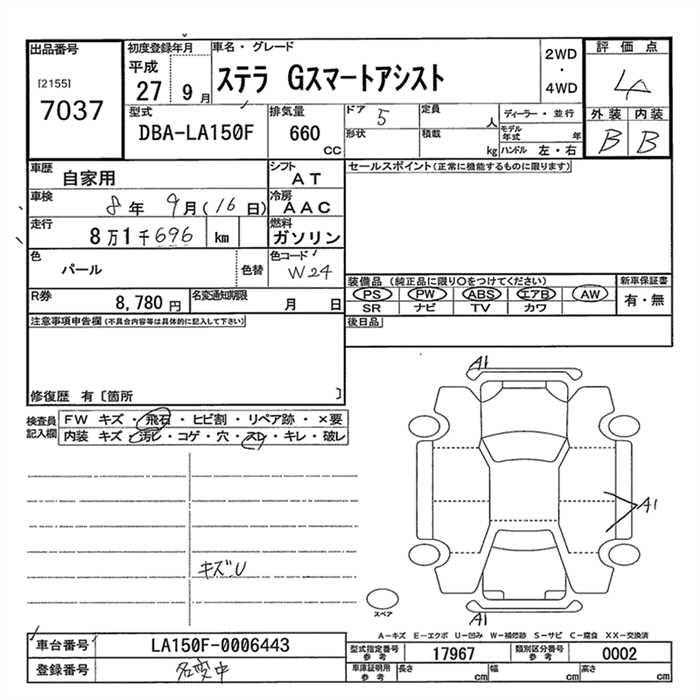 出品番号
[2155]
7037
初度登録年月
平成
27 9 月
車名・グレード
ステラ Gスマートアシスト
2WD
・
4WD
評価点
外装 内装
B B
型式
DBA-LA150F
排気量
660
CC
ドア 5
定員
人
形状
積載
kg
ディーラー・並行
モデル年式 年
ハンドル 左・右
車歴
自家用
シフト
AT
車検
8 年 9 月(16 日)
冷房
AAC
走行
8万1千696 km
燃料
ガソリン
色
パール
色替
色コード
W24
R券
8,780 円
名変通知期限
月 日
セールスポイント(正常に機能するものに限ります)
装備品(純正品に限り〇をつけてください)
PS PW ABS エアB AW
SR ナビ TV カワ
新車保証書
有・無
後日品
注意事項申告欄(不具合内容等は具体的に記入して下さい)
修復歴 有〔箇所 〕
検査員
記入欄
FW キズ・飛石・ヒビ割・リペア跡・×要
内装 キズ・汚レ・コゲ・穴・スレ・キレ・破レ
キズU
A1
A1
A1
スペア
A−キズ E−エクボ U−凹み W−補修跡 S−サビ C−腐食 XX−交換済
車台番号
LA150F-0006443
登録番号
名変中
型式指定番号
参考
17967
類別区分番号
参考
0002
車庫証明用
参考
長さ cm
幅 cm
高さ cm